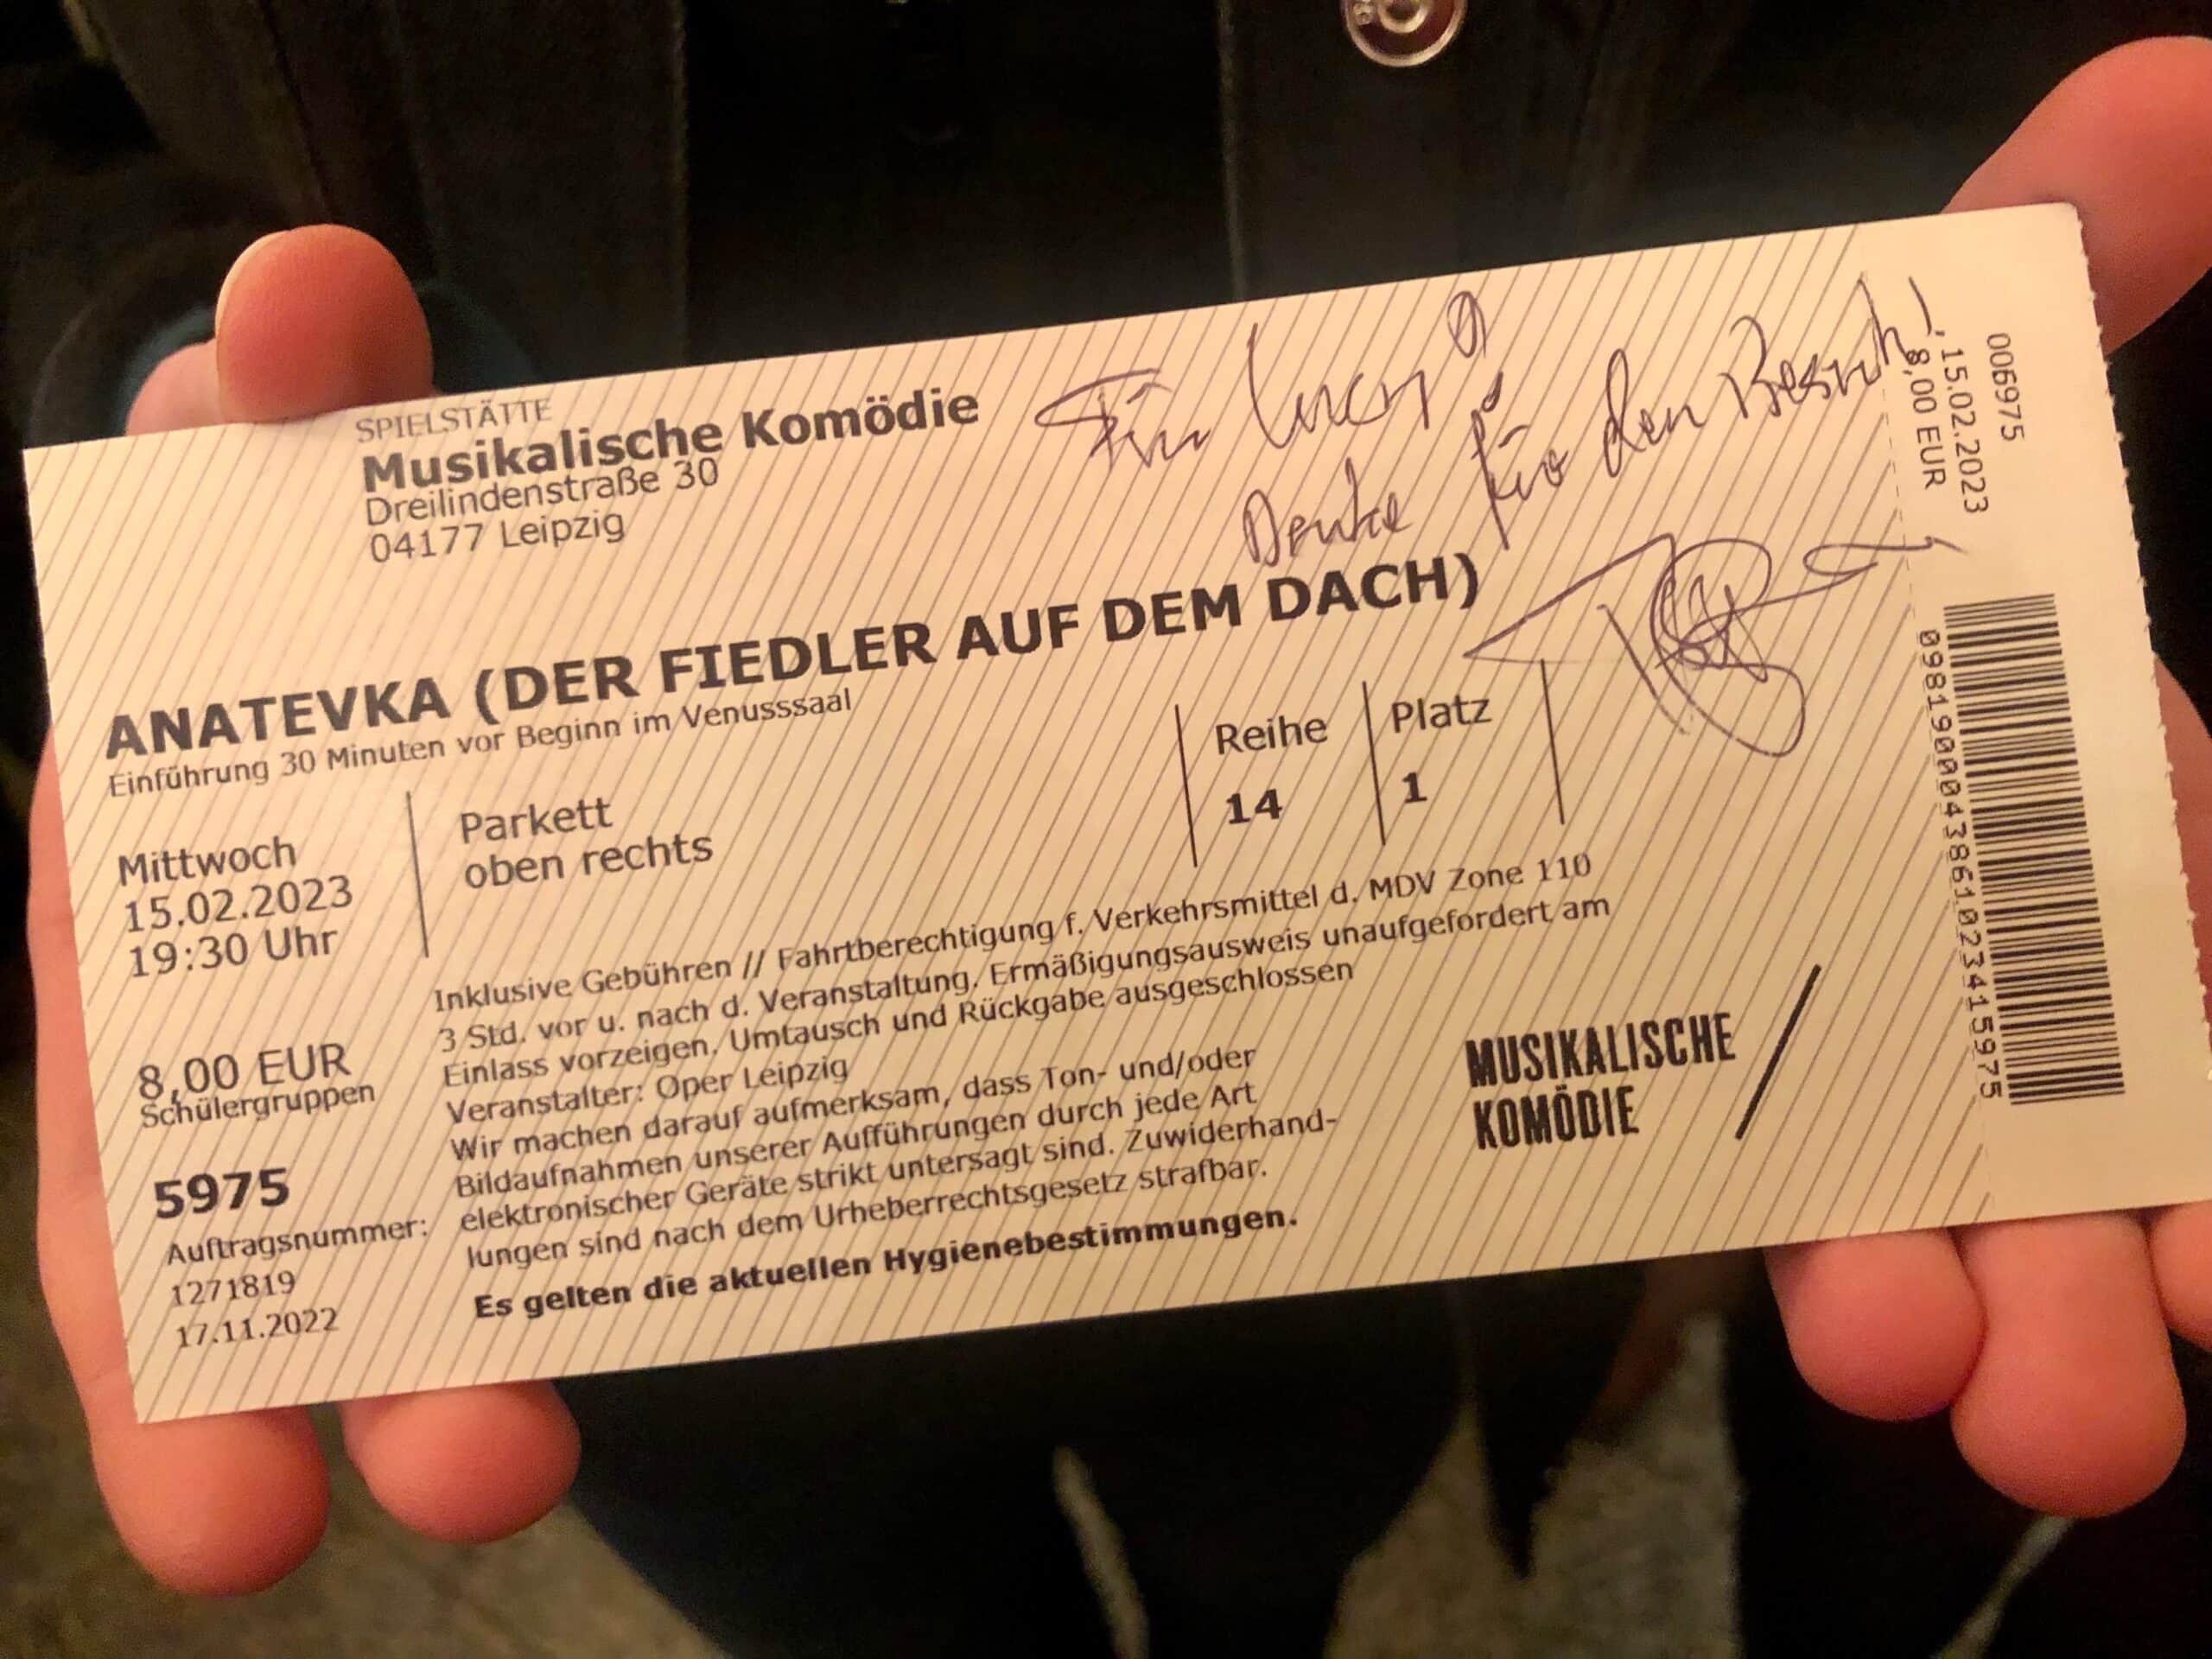 SPIELSTÄTTE
Musikalische Komödie
Dreilindenstraße 30
04177 Leipzig
Für Lucy
Danke für den Besuch
ANATEVKA (DER FIEDLER AUF DEM DACH)
Einführung 30 Minuten vor Beginn im Venusssaal
Mittwoch
15.02.2023
19:30 Uhr
Parkett
oben rechts
Reihe
14
Platz
1
8,00 EUR
Schülergruppen
5975
Auftragsnummer:
1271819
17.11.2022
Inklusive Gebühren // Fahrtberechtigung f. Verkehrsmittel d. MDV Zone 110
3 Std. vor u. nach d. Veranstaltung. Ermäßigungsausweis unaufgefordert am
Einlass vorzeigen. Umtausch und Rückgabe ausgeschlossen
Veranstalter: Oper Leipzig
Wir machen darauf aufmerksam, dass Ton- und/oder
Bildaufnahmen unserer Aufführungen durch jede Art
elektronischer Geräte strikt untersagt sind. Zuwiderhand-
lungen sind nach dem Urheberrechtsgesetz strafbar.
Es gelten die aktuellen Hygienebestimmungen.
MUSIKALISCHE
KOMÖDIE
006975
15.02.2023
8,00 EUR
0981900043861023415975